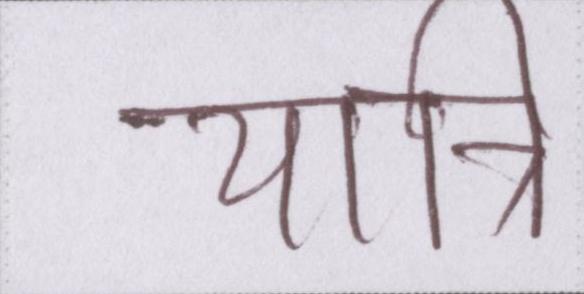 यात्रि